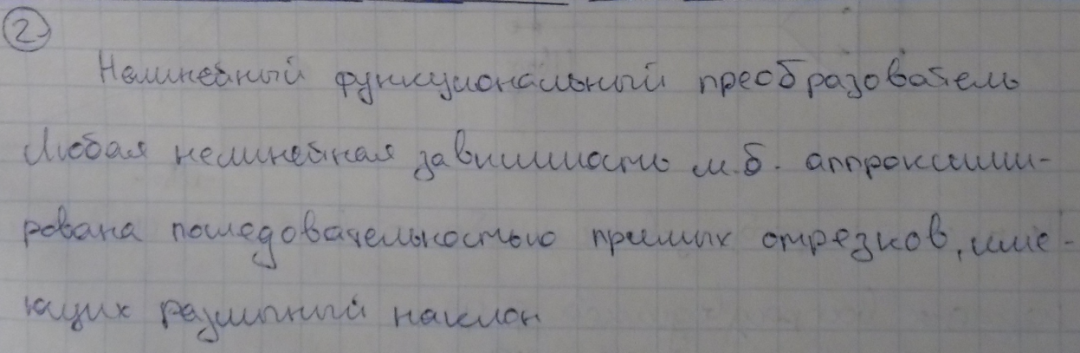 2
Нелинейный функциональный преобразователь
Любая нелинейная зависимость м.б. аппроксими-
рована последовательностью прямых отрезков, име-
ющих различный наклон